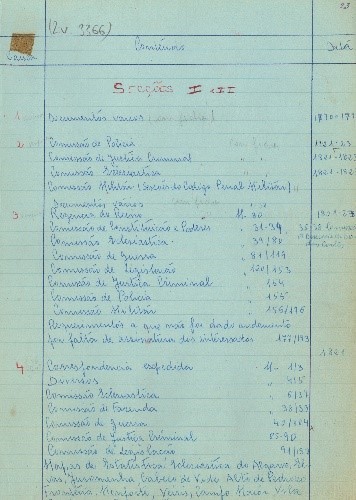 23
(Lv. 3366)
Caixa
Conteúdo
Data
Secções I e II
1 Documentos vários 1820-1
2 Comissão de Polícia 1821-23
Comissão de Justiça Criminal " " 1821-1823
Comissão Eclesiastica " " 1821-182
Comissão Militar (Secção do Codigo Penal Militar) "
Documentos vários
3 Regencia do Reino M. 30 1821-23
Comissão de Constituição e Poderes " 31-38
Comissão Eclesiastica " 39/80
Comissão de Guerra " 81/119
Comissão de Legislação " 120/153
Comissão de Justiça Criminal " 154
Comissão de Polícia " 155
Comissão Militar " 156/176
Requerimentos a que não foi dado andamento
por falta de assinatura dos interessados 177/193
1821
4 Correspondencia expedida M. 1/3
Diversos " 4/5
Comissão Eclesiastica " 6/37
Comissão de Fazenda " 38/39
Comissão de Guerra
Comissão de Justiça Criminal 55-90
Comissão de Legislação " 91/
Mapas de Estatística Eclesiastica do Algarve,
Cabeço de Vide, Alter de Pedroso
Monforte, Veiros, Campo Maior e Vila